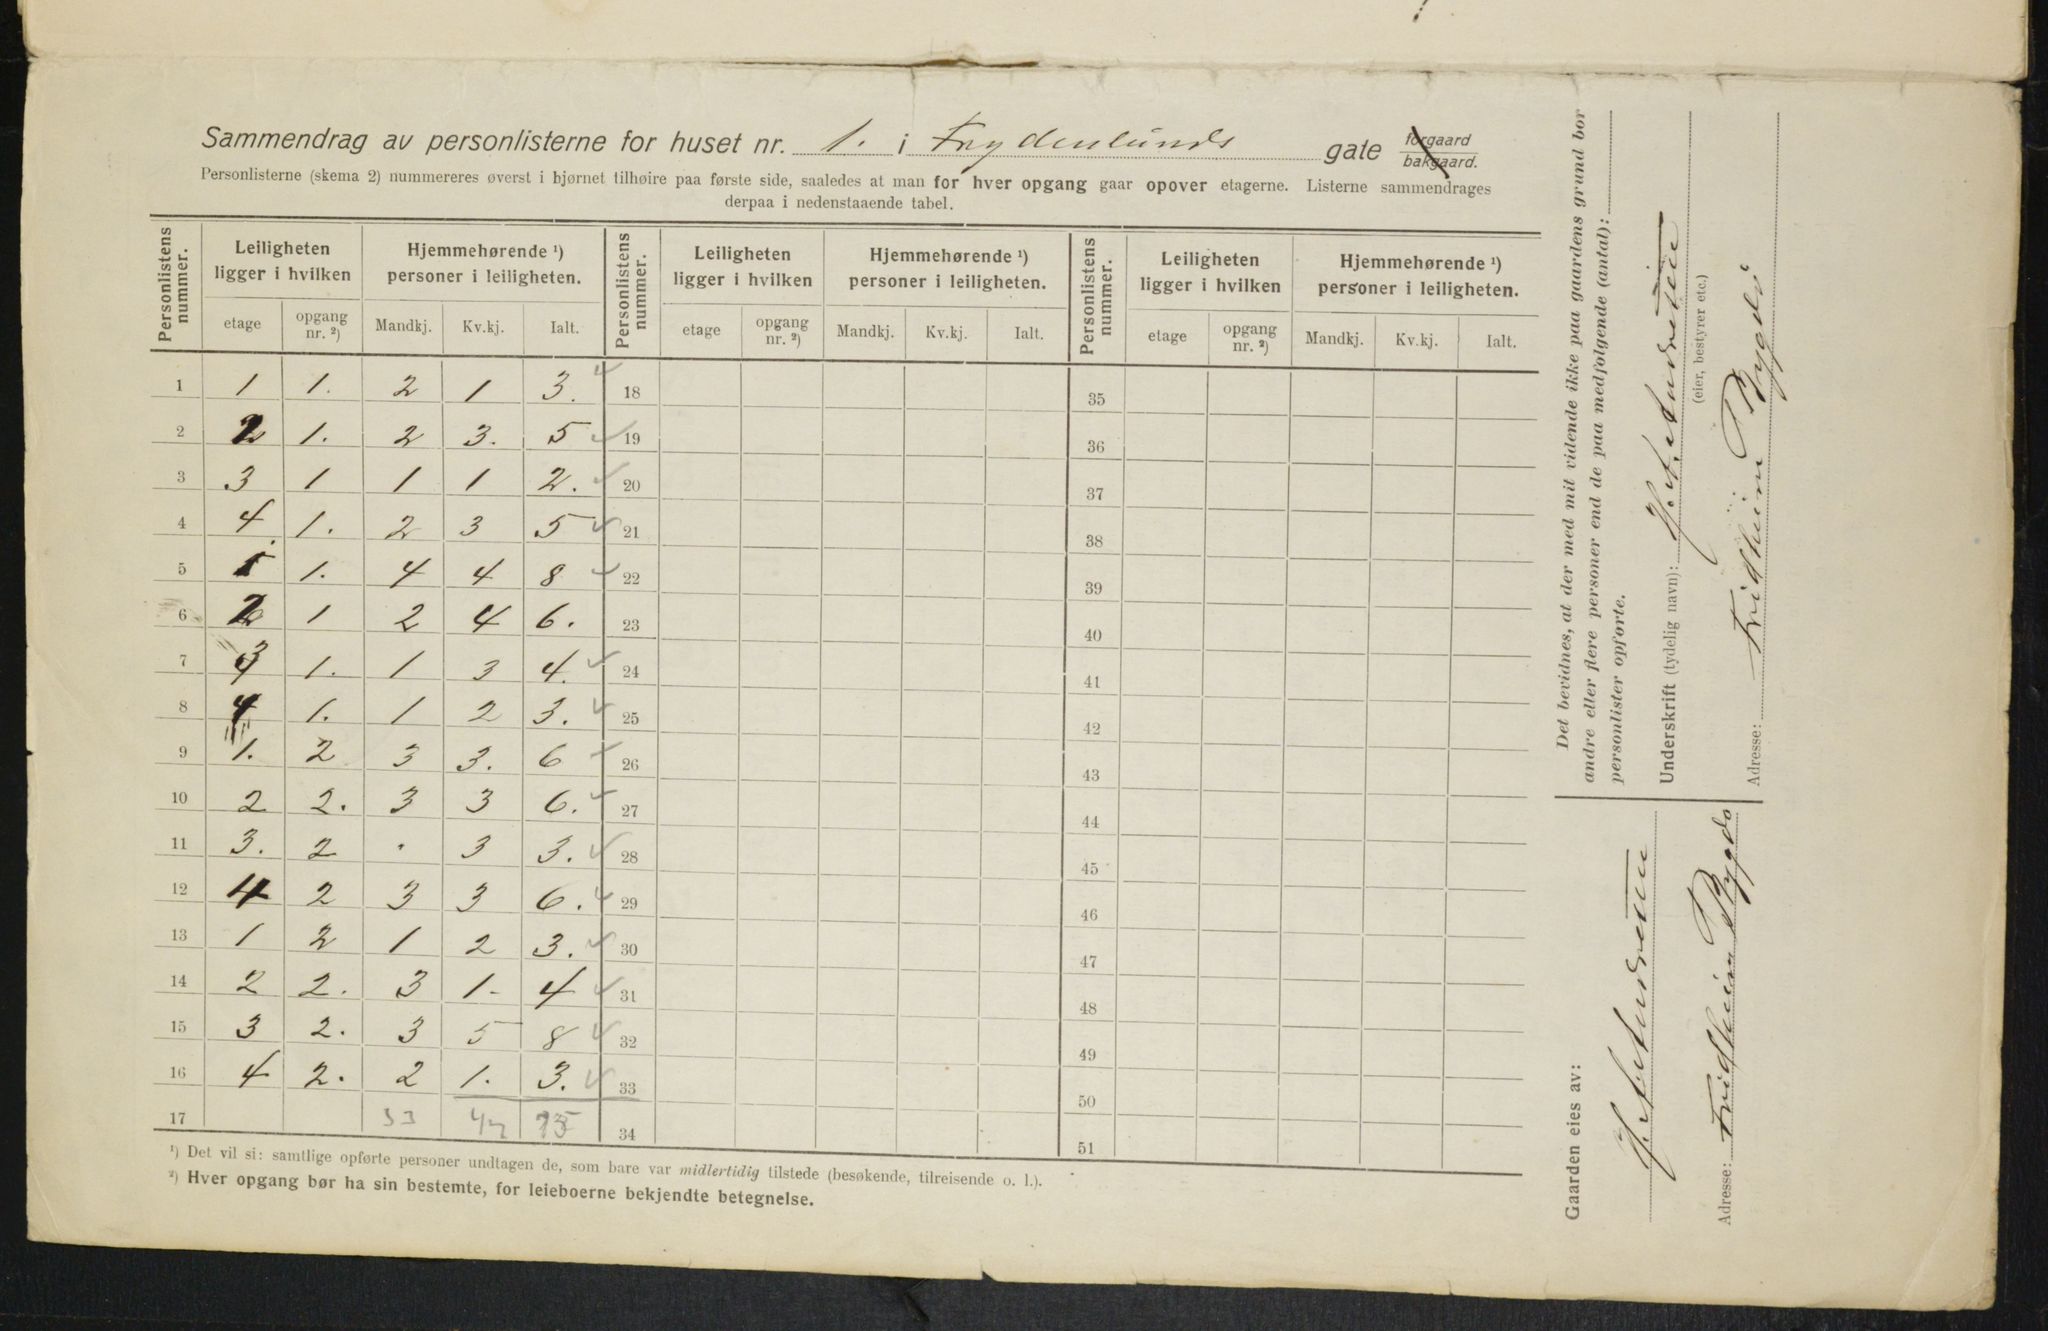 Sammendrag av personlisterne for huset nr. 1. i Frydenlunds gate forgaard bakgaard.
Personlisterne (skema 2) nummereres øverst i hjørnet tilhøire paa første side, saaledes at man for hver opgang gaar opover etagerne. Listerne sammendrages
derpaa i nedenstaaende tabel.
Personlistens nummer. Leiligheten ligger i hvilken Hjemmehørende ¹) personer i leiligheten. Personlistens nummer. Leiligheten ligger i hvilken Hjemmehørende ¹) personer i leiligheten. Personlistens nummer. Leiligheten ligger i hvilken Hjemmehørende ¹) personer i leiligheten.
etage opgang nr. ²) Mandkj. Kv.kj. Ialt. etage opgang nr. ²) Mandkj. Kv.kj. Ialt. etage opgang nr. ²) Mandkj. Kv.kj. Ialt.
1 1 1. 2 1 3. 18 35
2 2 1. 2 3. 5 19 36
3 3 1 1 1 2. 20 37
4 4 1. 2 3 5 21 38
5 1 1. 4 4 8 22 39
6 2 1 2 4 6. 23 40
7 3 1. 1 3 4. 24 41
8 4 1. 1 2 3. 25 42
9 1. 2 3 3. 6 26 43
10 2 2. 3 3 6. 27 44
11 3. 2 . 3 3. 28 45
12 4 2 3 3 6. 29 46
13 1 2 1 2 3. 30 47
14 2 2. 3 1. 4 31 48
15 3 2. 3 5 8 32 49
16 4 2. 2 1. 3. 33 50
17 33 42 75 34 51
¹) Det vil si: samtlige opførte personer undtagen de, som bare var midlertidig tilstede (besøkende, tilreisende o. l.).
²) Hver opgang bør ha sin bestemte, for leieboerne bekjendte betegnelse.
Det bevidnes, at der med mit vidende ikke paa gaardens grund bor
andre eller flere personer end de paa medfølgende (antal):
personlister opførte.
Underskrift (tydelig navn):
(eier, bestyrer etc.)
Adresse: Fridheim Bygdø
Gaarden eies av:
Adresse: Fridheim Bygdø